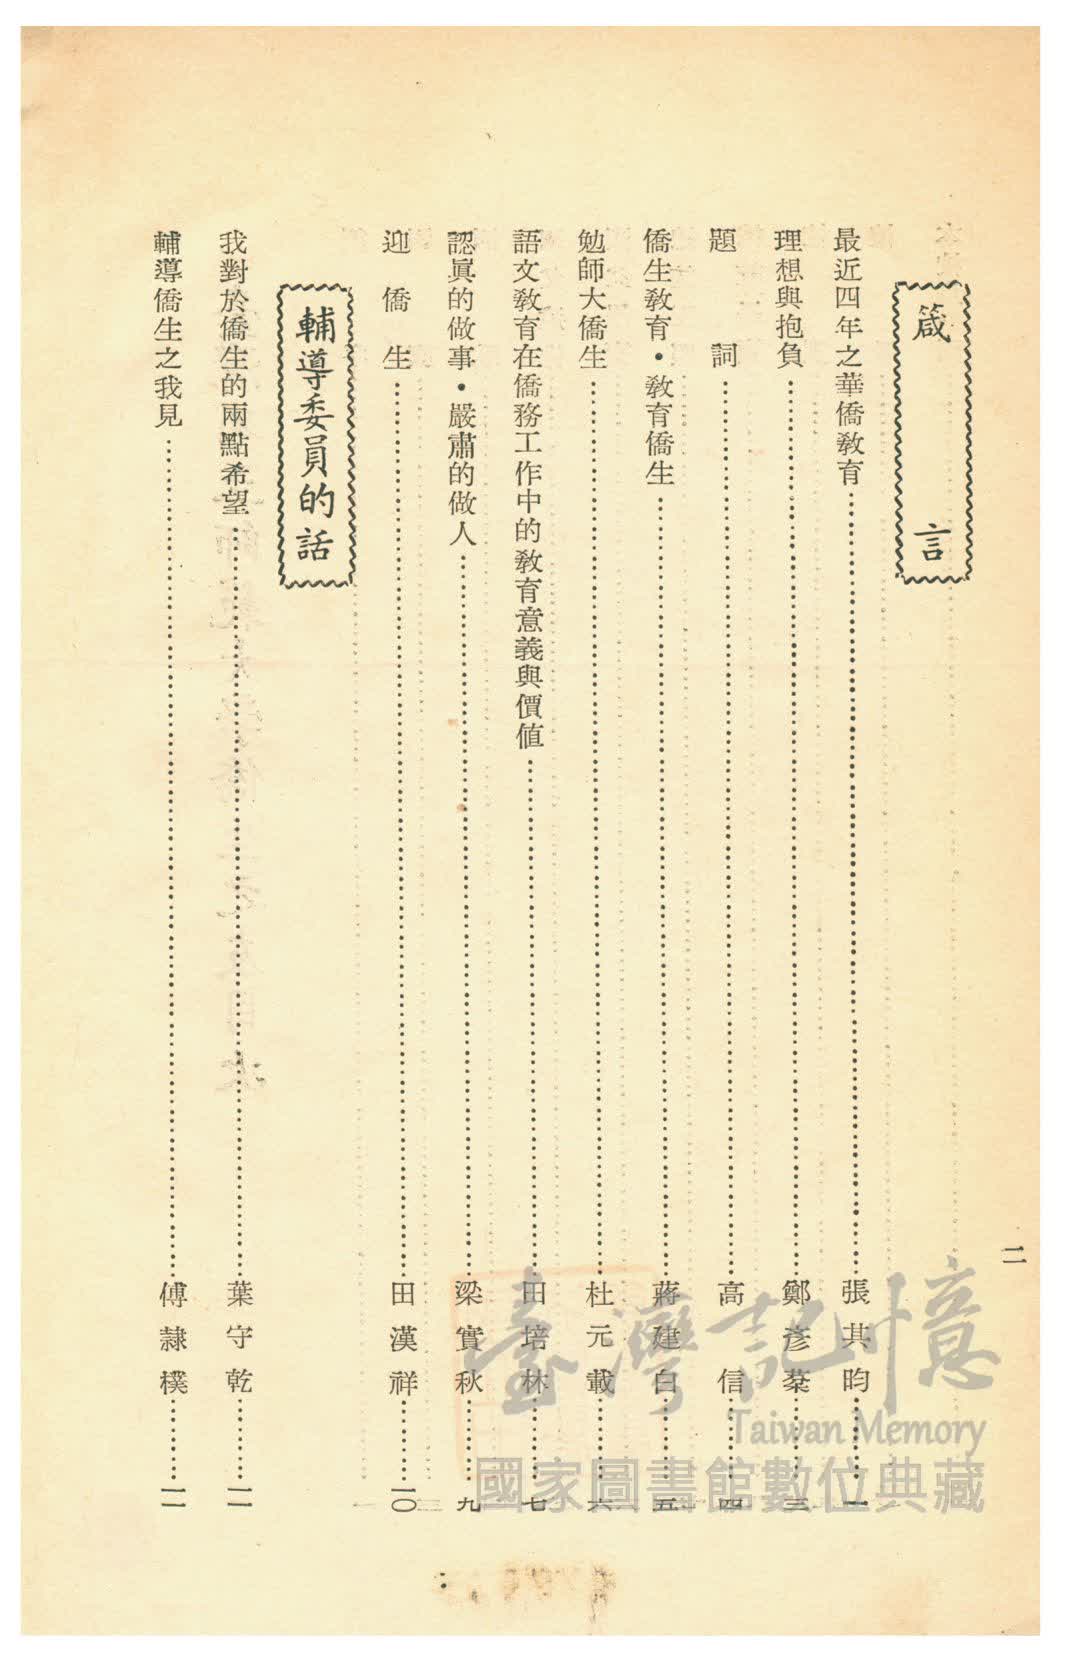 二
箴言
最近四年之華僑教育……張其昀……一
理想與抱負……鄭彥棻……三
題詞……高信……四
僑生教育・教育僑生……蔣建白……五
勉師大僑生……杜元載……六
語文教育在僑務工作中的教育意義與價值……田培林……七
認眞的做事・嚴肅的做人……梁實秋……九
迎僑生……田漢祥……一〇
輔導委員的話
我對於僑生的兩點希望……葉守乾……一一
輔導僑生之我見……傅隸樸……一一
臺灣記憶
Taiwan Memory
國家圖書館數位典藏